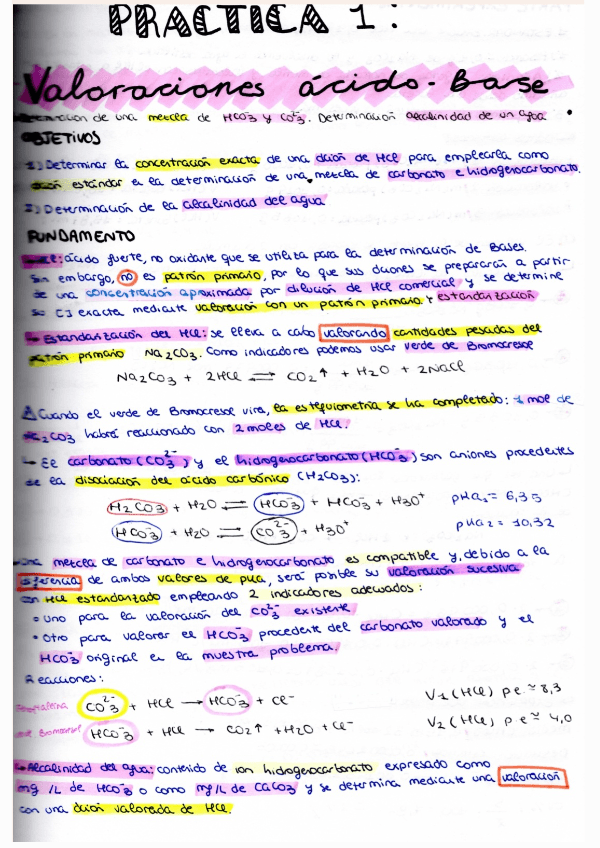 PRACTICA 1:
Valoraciones ácido-Base
de una mezcla de HCO₃⁻ y CO₃²⁻. Determinación alcalinidad de un agua
OBJETIVOS
1) Determinar la concentración exacta de una dción de HCl para emplearla como
dción estándar en la determinación de una mezcla de carbonato e hidrogenocarbonato.
2) Determinación de la alcalinidad del agua
FUNDAMENTO
HCl: ácido fuerte, no oxidante que se utiliza para la determinación de Bases.
Sin embargo, no es patrón primario, por lo que sus dciones se prepararán a partir
de una concentración aproximada por dilución de HCl comercial y se determine
su [] exacta mediante valoración con un patrón primario. → estandarización
→ Estandarización del HCl: se lleva a cabo valorando cantidades pesadas del
patrón primario Na₂CO₃. Como indicadores podemos usar Verde de Bromocresol
Na₂CO₃ + 2HCl ⇌ CO₂↑ + H₂O + 2NaCl
⚠ Cuando el verde de Bromocresol vira, la estequiometría se ha completado: 1 mol de
Na₂CO₃ habrá reaccionado con 2 moles de HCl.
→ El carbonato (CO₃²⁻) y el hidrogenocarbonato (HCO₃⁻) son aniones procedentes
de la disociación del ácido carbónico (H₂CO₃):
H₂CO₃ + H₂O ⇌ HCO₃⁻ + HCO₃⁻ + H₃O⁺ pKa₁ = 6,35
HCO₃⁻ + H₂O ⇌ CO₃²⁻ + H₃O⁺ pKa₂ = 10,32
→ Una mezcla de carbonato e hidrogenocarbonato es compatible y, debido a la
diferencia de ambos valores de pka, será posible su valoración sucesiva
con HCl estandarizado empleando 2 indicadores adecuados:
• Uno para la valoración del CO₃²⁻ existente
• Otro para valorar el HCO₃⁻ procedente del carbonato valorado y el
HCO₃⁻ original en la muestra problema.
Reacciones:
Fenolftaleina CO₃²⁻ + HCl → HCO₃⁻ + Cl⁻ V₁ (HCl) p.e ≃ 8,3
verde Bromocresol HCO₃⁻ + HCl → CO₂↑ + H₂O + Cl⁻ V₂ (HCl) p.e ≃ 4,0
→ Alcalinidad del agua: contenido de ion hidrogenocarbonato expresado como
mg/L de HCO₃⁻ o como mg/L de CaCO₃ y se determina mediante una valoración
con una dción valorada de HCl.